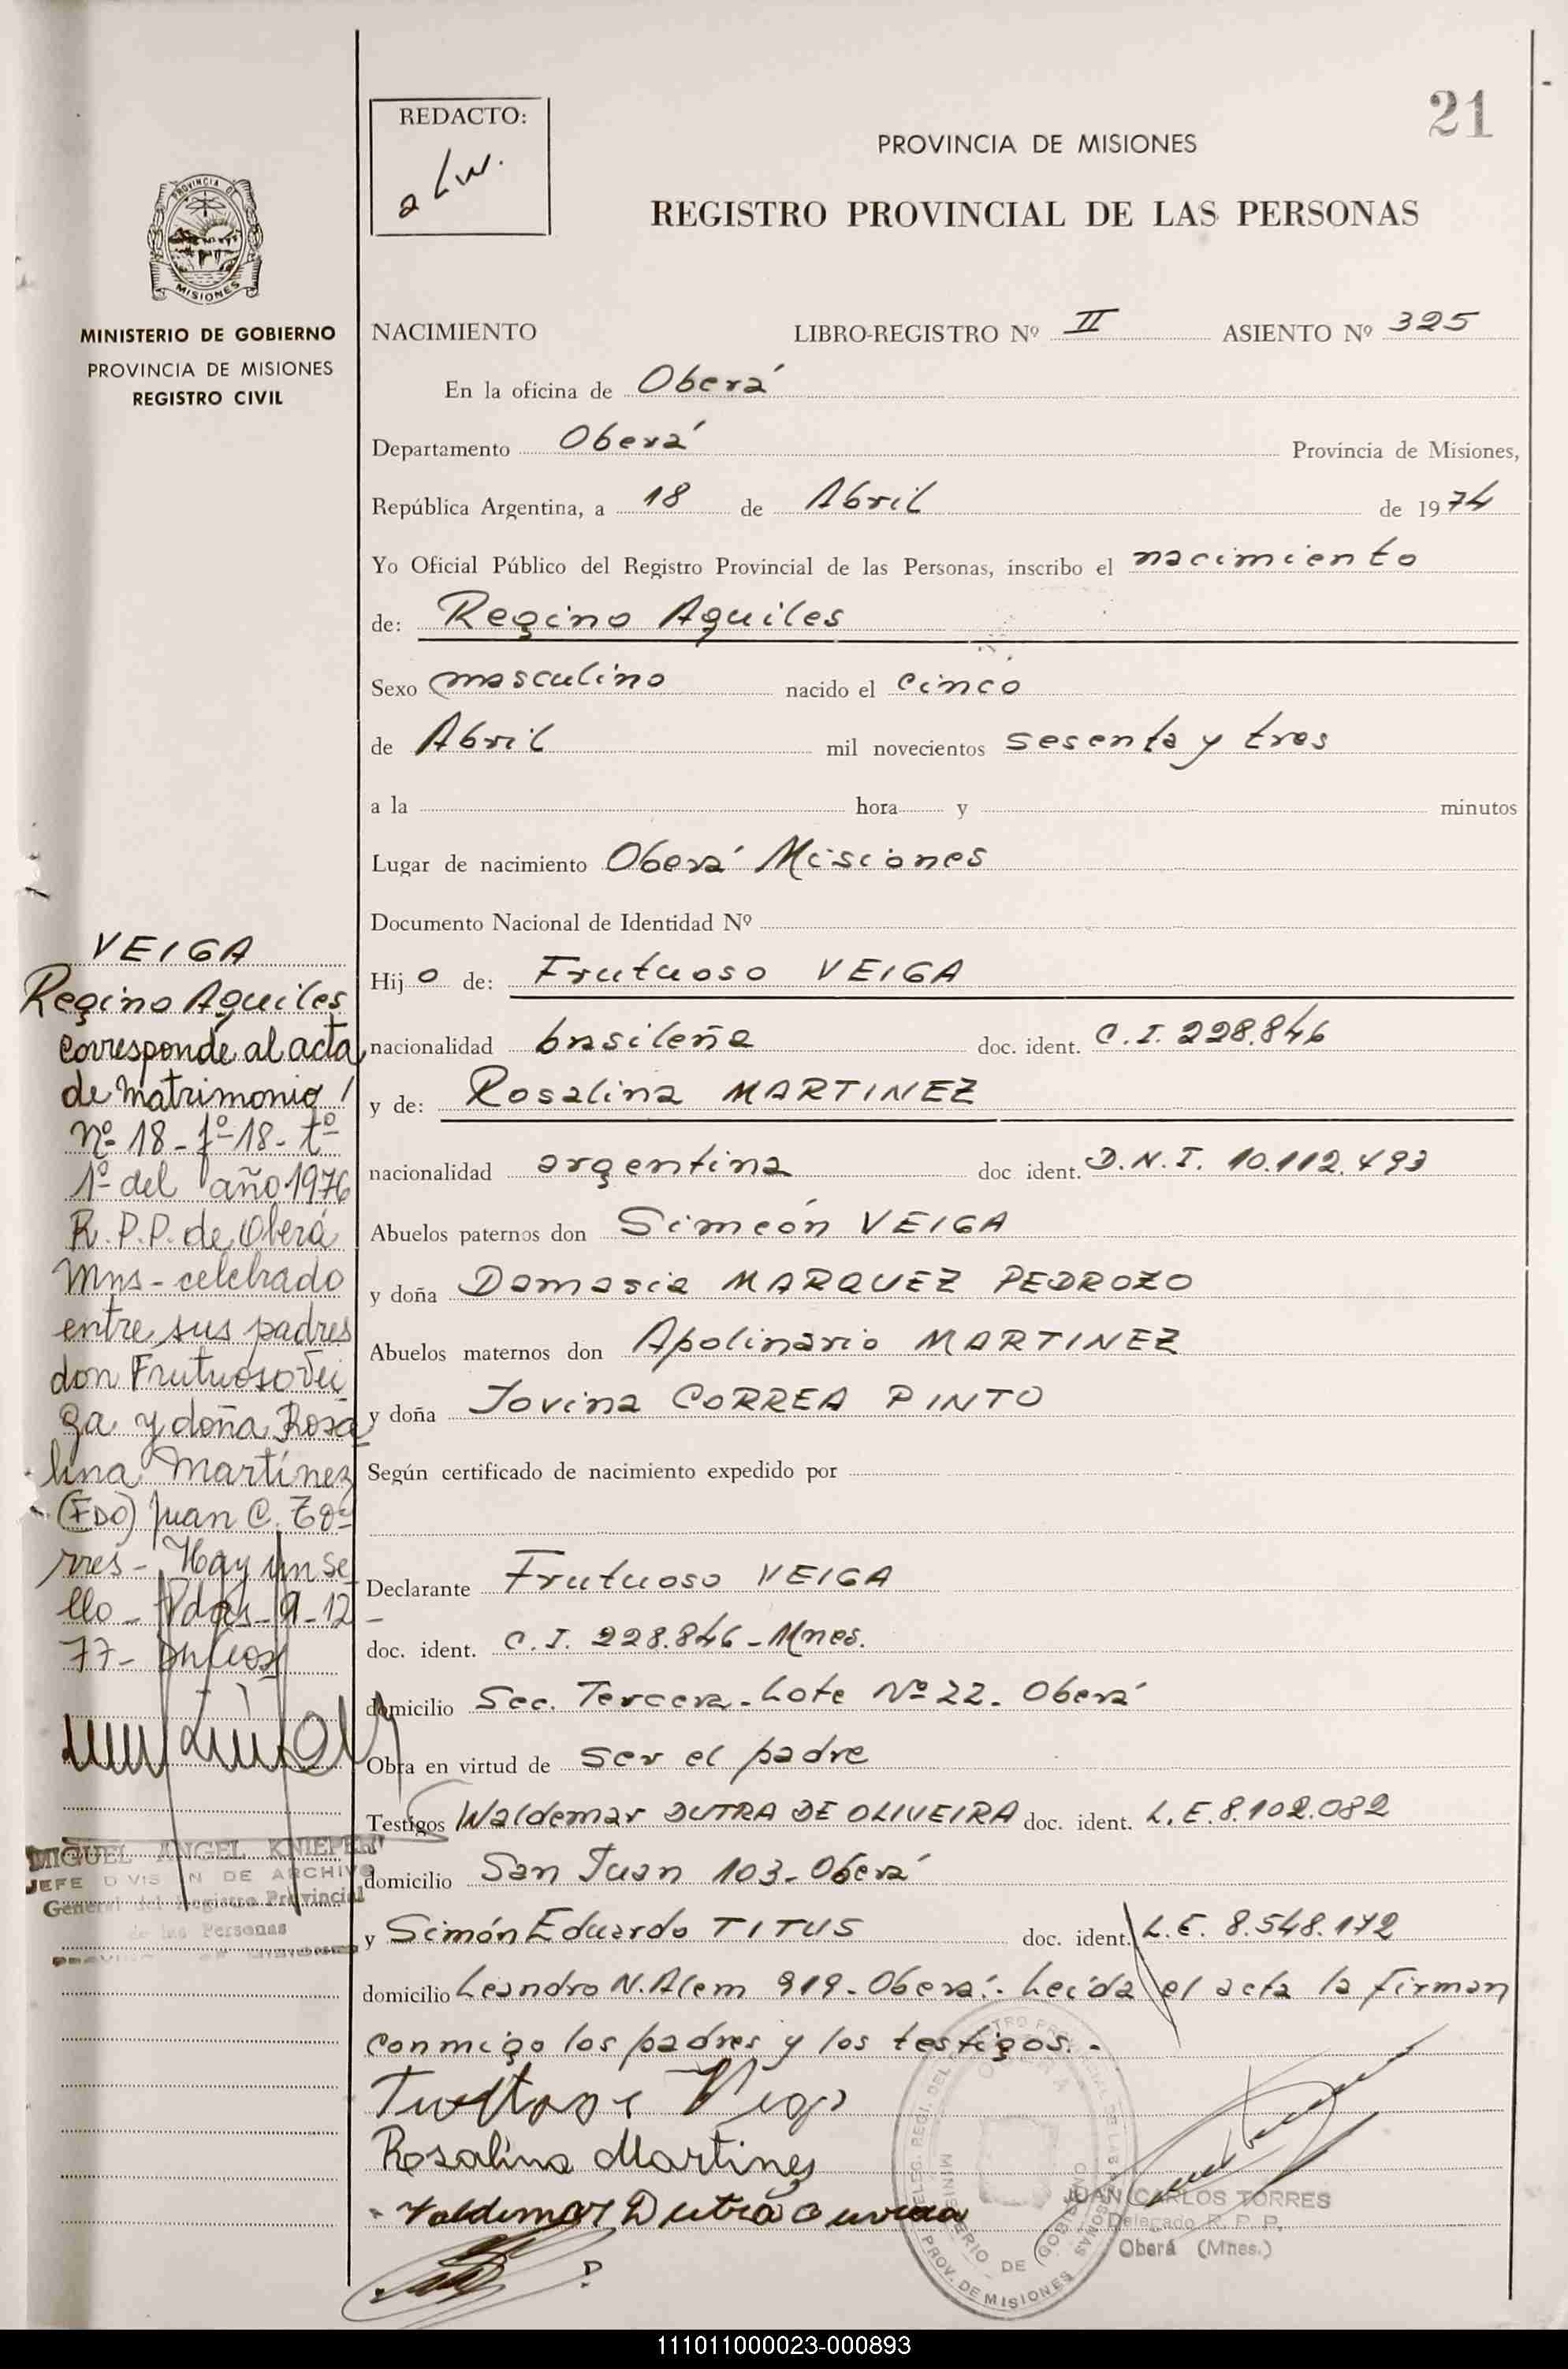 21
REDACTO:
PROVINCIA DE MISIONES
REGISTRO PROVINCIAL DE LAS PERSONAS
PROVINCIA DE
MISIONES
MINISTERIO DE GOBIERNO
PROVINCIA DE MISIONES
REGISTRO CIVIL
NACIMIENTO LIBRO-REGISTRO Nº II ASIENTO Nº 325
En la oficina de Oberá
Departamento Oberá Provincia de Misiones,
República Argentina, a 18 de Abril de 1974
Yo Oficial Público del Registro Provincial de las Personas, inscribo el nacimiento
de: Regino Aquiles
Sexo masculino nacido el cinco
de Abril mil novecientos sesenta y tres
a la hora y minutos
Lugar de nacimiento Oberá Misiones
Documento Nacional de Identidad Nº
Hijo de: Frutuoso VEIGA
nacionalidad brasileña doc. ident. C.I. 228.846
y de: Rosalina MARTINEZ
nacionalidad argentina doc ident. D.N.I. 10.112.493
Abuelos paternos don Simeón VEIGA
y doña Damasia MARQUEZ PEDROZO
Abuelos maternos don Apolinario MARTINEZ
y doña Jovina CORREA PINTO
Según certificado de nacimiento expedido por
Declarante Frutuoso VEIGA
doc. ident. C.I. 228.846-Mnes.
domicilio Sec. Tercera-Lote Nº 22- Oberá
Obra en virtud de ser el padre
Testigos Waldemar DUTRA DE OLIVEIRA doc. ident. L.E. 8.102.082
domicilio San Juan 103-Oberá
y Simón Eduardo TITUS doc. ident. L.E. 8.548.172
domicilio Leandro N. Alem 919-Oberá.- Leída el acta la firman
conmigo los padres y los testigos.-
Rosalina Martines
Valdemar Dutra
JUAN CARLOS TORRES
Delegado R. P. P.
Oberá (Mnes.)
MINISTERIO DE GOBIERNO
PROV. DE MISIONES
VEIGA
Regino Aquiles
corresponde al acta
de matrimonio
Nº 18-fº 18-tº
1º del año 1976
R.P.P. de Oberá
Mns-celebrado
entre sus padres
don Frutuoso Vei
ga y doña Rosa
lina Martínez
(FDO) Juan C. To
rres- Hay un se
llo- Pdas-9-12-
77-
MIGUEL ANGEL KNIEPER
JEFE DIVISION DE ARCHIVO
General del Registro Provincial
de las Personas
111011000023-000893